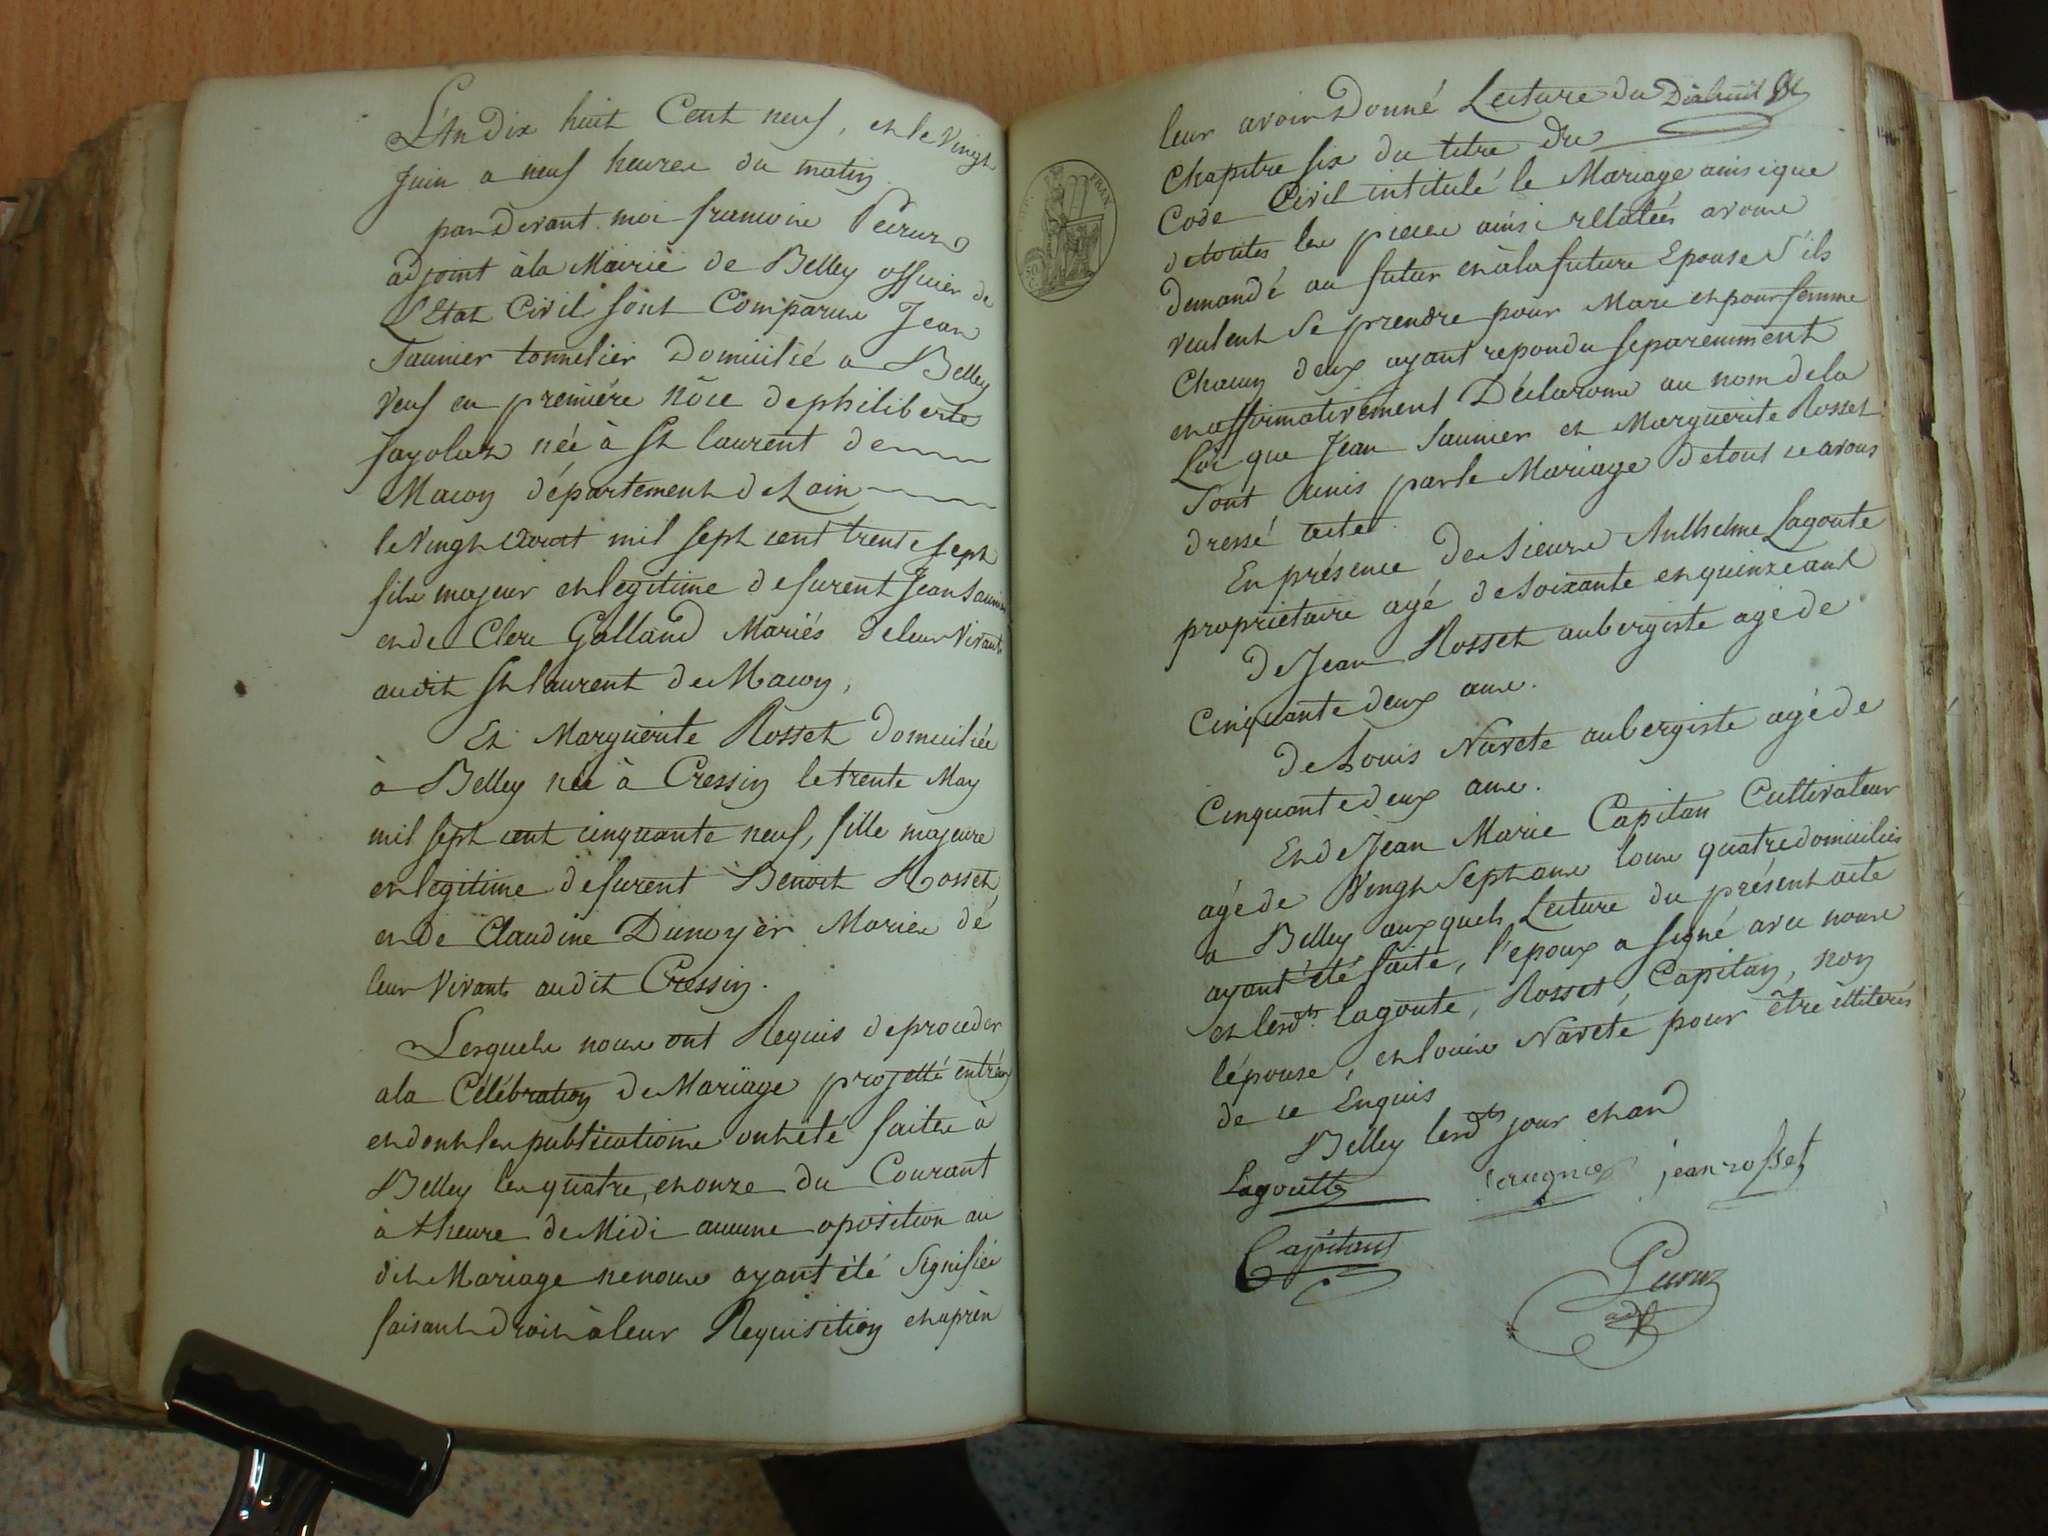 L'An Dix huit Cent neuf, et le Vingt
Juin a neuf heures du matin
pardevant moi francois Peiruz
adjoint à la Mairie de Belley officier de
L'Etat Civil sont Comparus Jean
Saunier tonnelier Domicilié a Belley
veuf en première nôce de philiberte
fayolat née à St laurent de
Macon département de Lain
le vingt aout mil sept cent trente sept
fils majeur et legitime defurent Jean Saunier
et de Clere Galland Mariés de leur Vivant
audit St laurent de Macon,
Et Marguerite Rosset domiciliée
à Belley née à Cressin le trente May
mil sept cent cinquante neuf, fille majeure
et legitime defurent Benoit Rosset
et de Claudine Dunoyer Mariés dé
leur Vivants audit Cressin.
Lesquels nous ont Requis de proceder
a la Célébration de Mariage projetté entr'eux
et dont les publications ont été faites à
Belley les quatre, et onze du Courant
à l'heure de Midi aucune oposition au
dit Mariage ne nous ayant été Signifiée
faisant droit à leur Requisition et après
leur avoir Donné Lecture du Dixhuit
Chapitre six du titre du
Code Civil intitulé le Mariage ainsi que
de toutes les pieces ainsi relatées avons
demandé au futur et à la future Epouse s'ils
veulent se prendre pour Mari et pour femme
Chacun deux ayant repondu separemment
et affirmativement Déclarons au nom de la
Loi que Jean Saunier et Marguerite Rosset
sont unis par le Mariage de tout ce avons
dressé acte.
En présence de sieurs Anthelme Lagoute
proprietaire agé de soixante et quinze ans
de Jean Rosset aubergiste agé de
Cinquante deux ans.
de Louis Navete aubergiste agé de
Cinquante deux ans.
Et de Jean Marie Capitan Cultivateur
agé de Vingt Sept ans tous quatre domiciliés
a Belley auxquels Lecture du présent acte
ayant été faite, l'epoux a signé avec nous
et lesdts. Lagoute, Rosset, Capitan, non
l'épouse, et louis Naveté pour être illiterés
de ce Enquis
Belley lesdts jour et an
Lagoutte jean rosset
Capitant
Peiruz
adjt